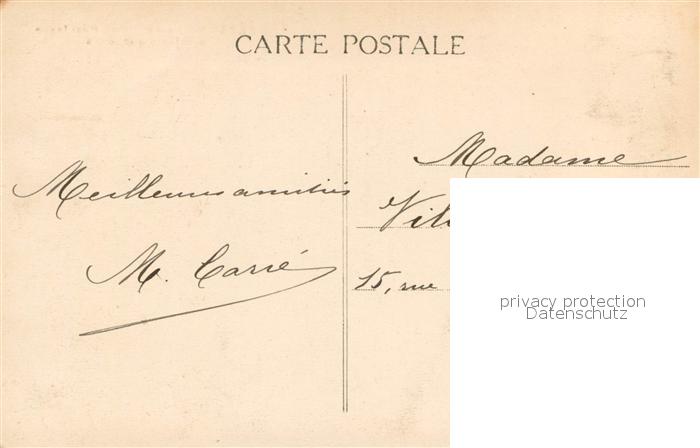 CARTE POSTALE
Meilleures amitiés
M. Carré
Madame
15, rue
privacy protection
Datenschutz